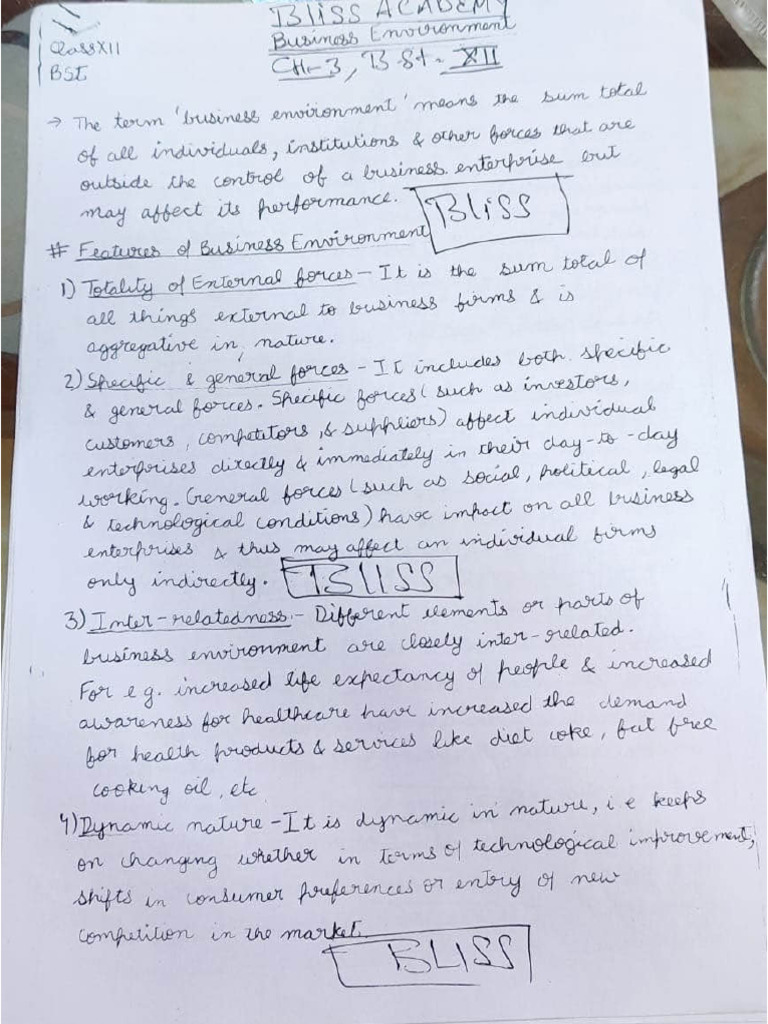 BLISS ACADEMY
Business Environment
Class XII
BSt
CH-3, B.St - XII
→ The term 'business environment' means the sum total
of all individuals, institutions & other forces that are
outside the control of a business enterprise but
may affect its performance.
BLISS
# Features of Business Environment
1) Totality of External forces - It is the sum total of
all things external to business firms & is
aggregative in nature.
2) Specific & general forces - It includes both specific
& general forces. Specific forces (such as investors,
customers, competitors, & suppliers) affect individual
enterprises directly & immediately in their day-to-day
working. General forces (such as social, political, legal
& technological conditions) have impact on all business
enterprises & thus may affect an individual firms
only indirectly.
BLISS
3) Inter-relatedness - Different elements or parts of
business environment are closely inter-related.
For e.g. increased life expectancy of people & increased
awareness for healthcare have increased the demand
for health products & services like diet coke, fat free
cooking oil, etc
4) Dynamic nature - It is dynamic in nature, i.e keeps
on changing whether in terms of technological improvement,
shifts in consumer preferences or entry of new
competition in the market.
BLISS